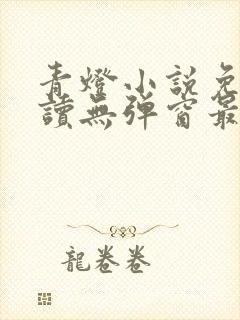 青燈小說免
讀無彈窗最
龍卷卷